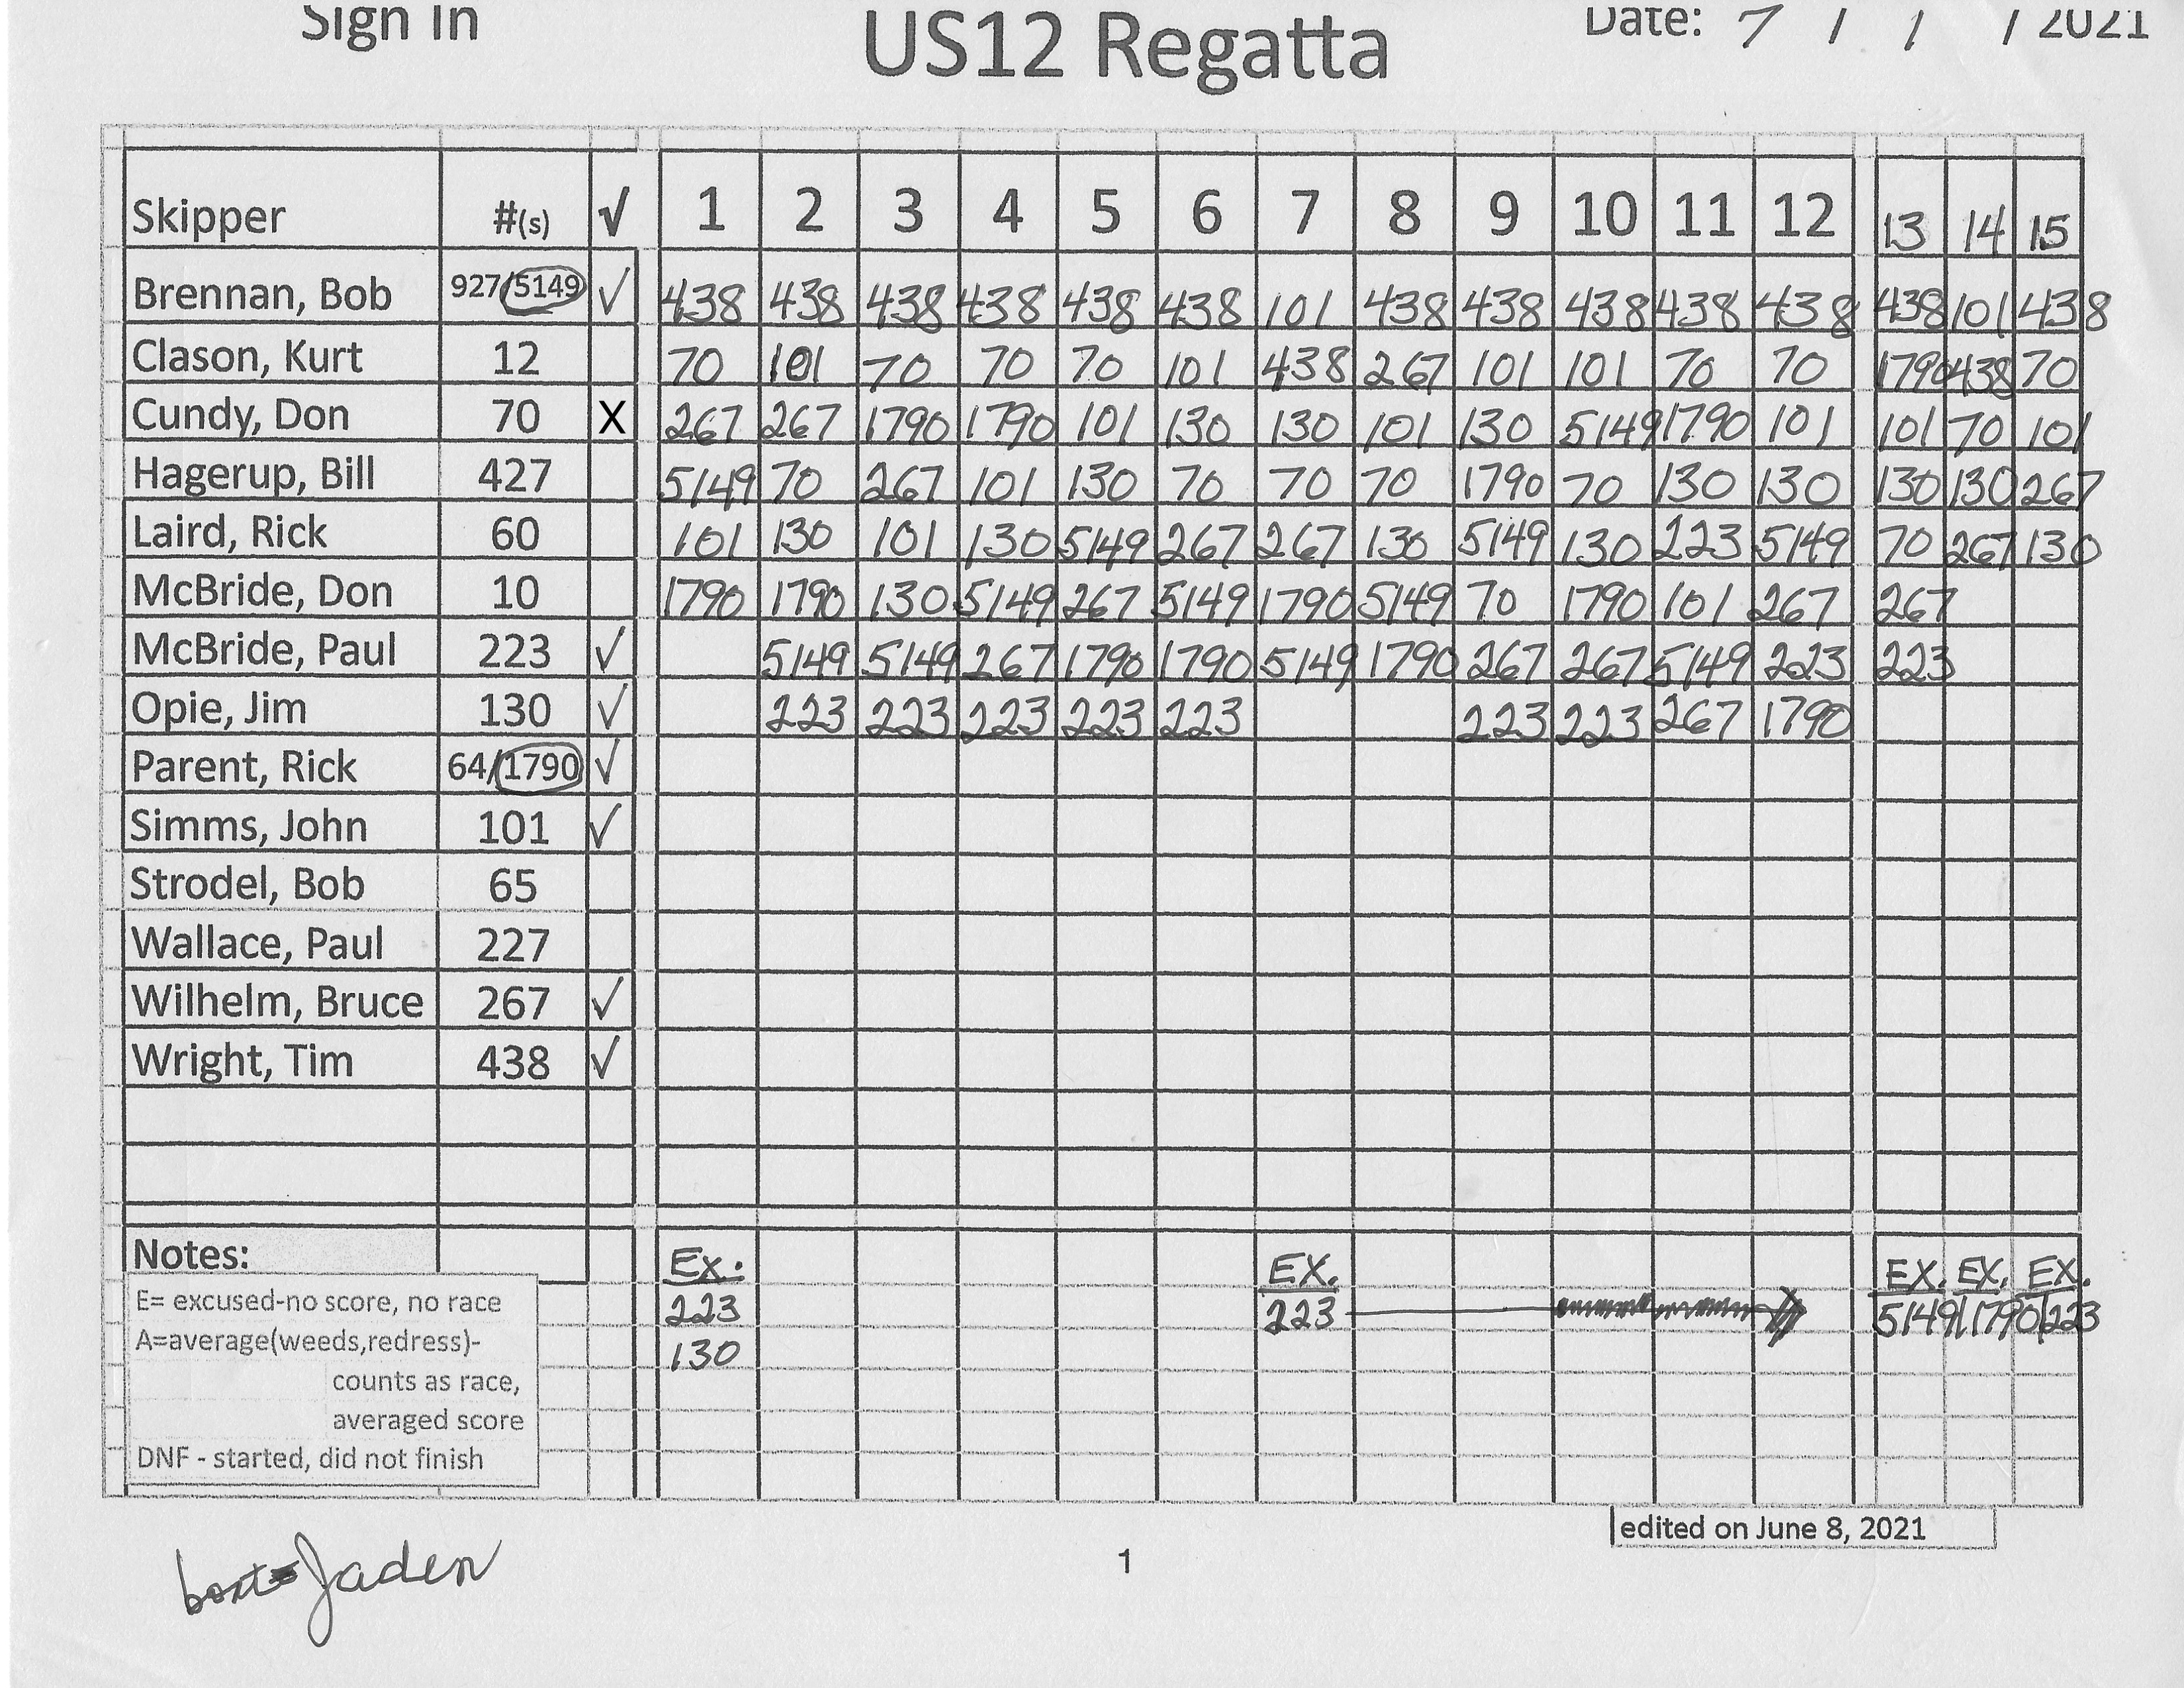 Sign In US12 Regatta Date: 7 / 1 / 2021
Skipper #(s) √ 1 2 3 4 5 6 7 8 9 10 11 12 13 14 15
Brennan, Bob 927/5149 √ 438 438 438 438 438 438 101 438 438 438 438 438 438 101 438
Clason, Kurt 12 70 101 70 70 70 101 438 267 101 101 70 70 1790 438 70
Cundy, Don 70 X 267 267 1790 1790 101 130 130 101 130 5149 1790 101 101 70 101
Hagerup, Bill 427 5149 70 267 101 130 70 70 70 1790 70 130 130 130 130 267
Laird, Rick 60 101 130 101 130 5149 267 267 130 5149 130 223 5149 70 267 130
McBride, Don 10 1790 1790 130 5149 267 5149 1790 5149 70 1790 101 267 267
McBride, Paul 223 √ 5149 5149 267 1790 1790 5149 1790 267 267 5149 223 223
Opie, Jim 130 √ 223 223 223 223 223 223 223 267 1790
Parent, Rick 64/1790 √
Simms, John 101 √
Strodel, Bob 65
Wallace, Paul 227
Wilhelm, Bruce 267 √
Wright, Tim 438 √
Notes: Ex. EX. EX. EX. EX.
E= excused-no score, no race 223 223 5149 1790 223
A=average(weeds,redress)- 130
counts as race,
averaged score
DNF - started, did not finish
edited on June 8, 2021
boat= Jaden
1